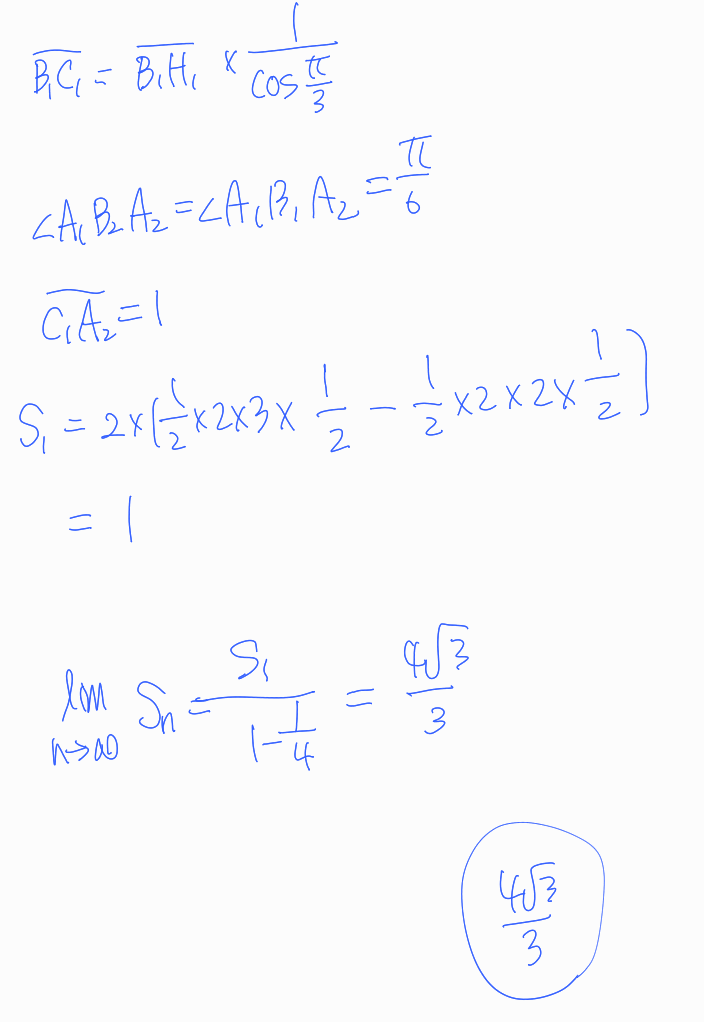 B₁C₁ = B₁H₁ × 1/cos(π/3)
∠A₁B₂A₂ = ∠A₁B₁A₂ = π/6
C₁A₂ = 1
S₁ = 2×(1/2×2×3×1/2 − 1/2×2×2×1/2)
= 1
lim n→∞ Sn = S₁/(1−1/4) = 4√3/3
4√3/3